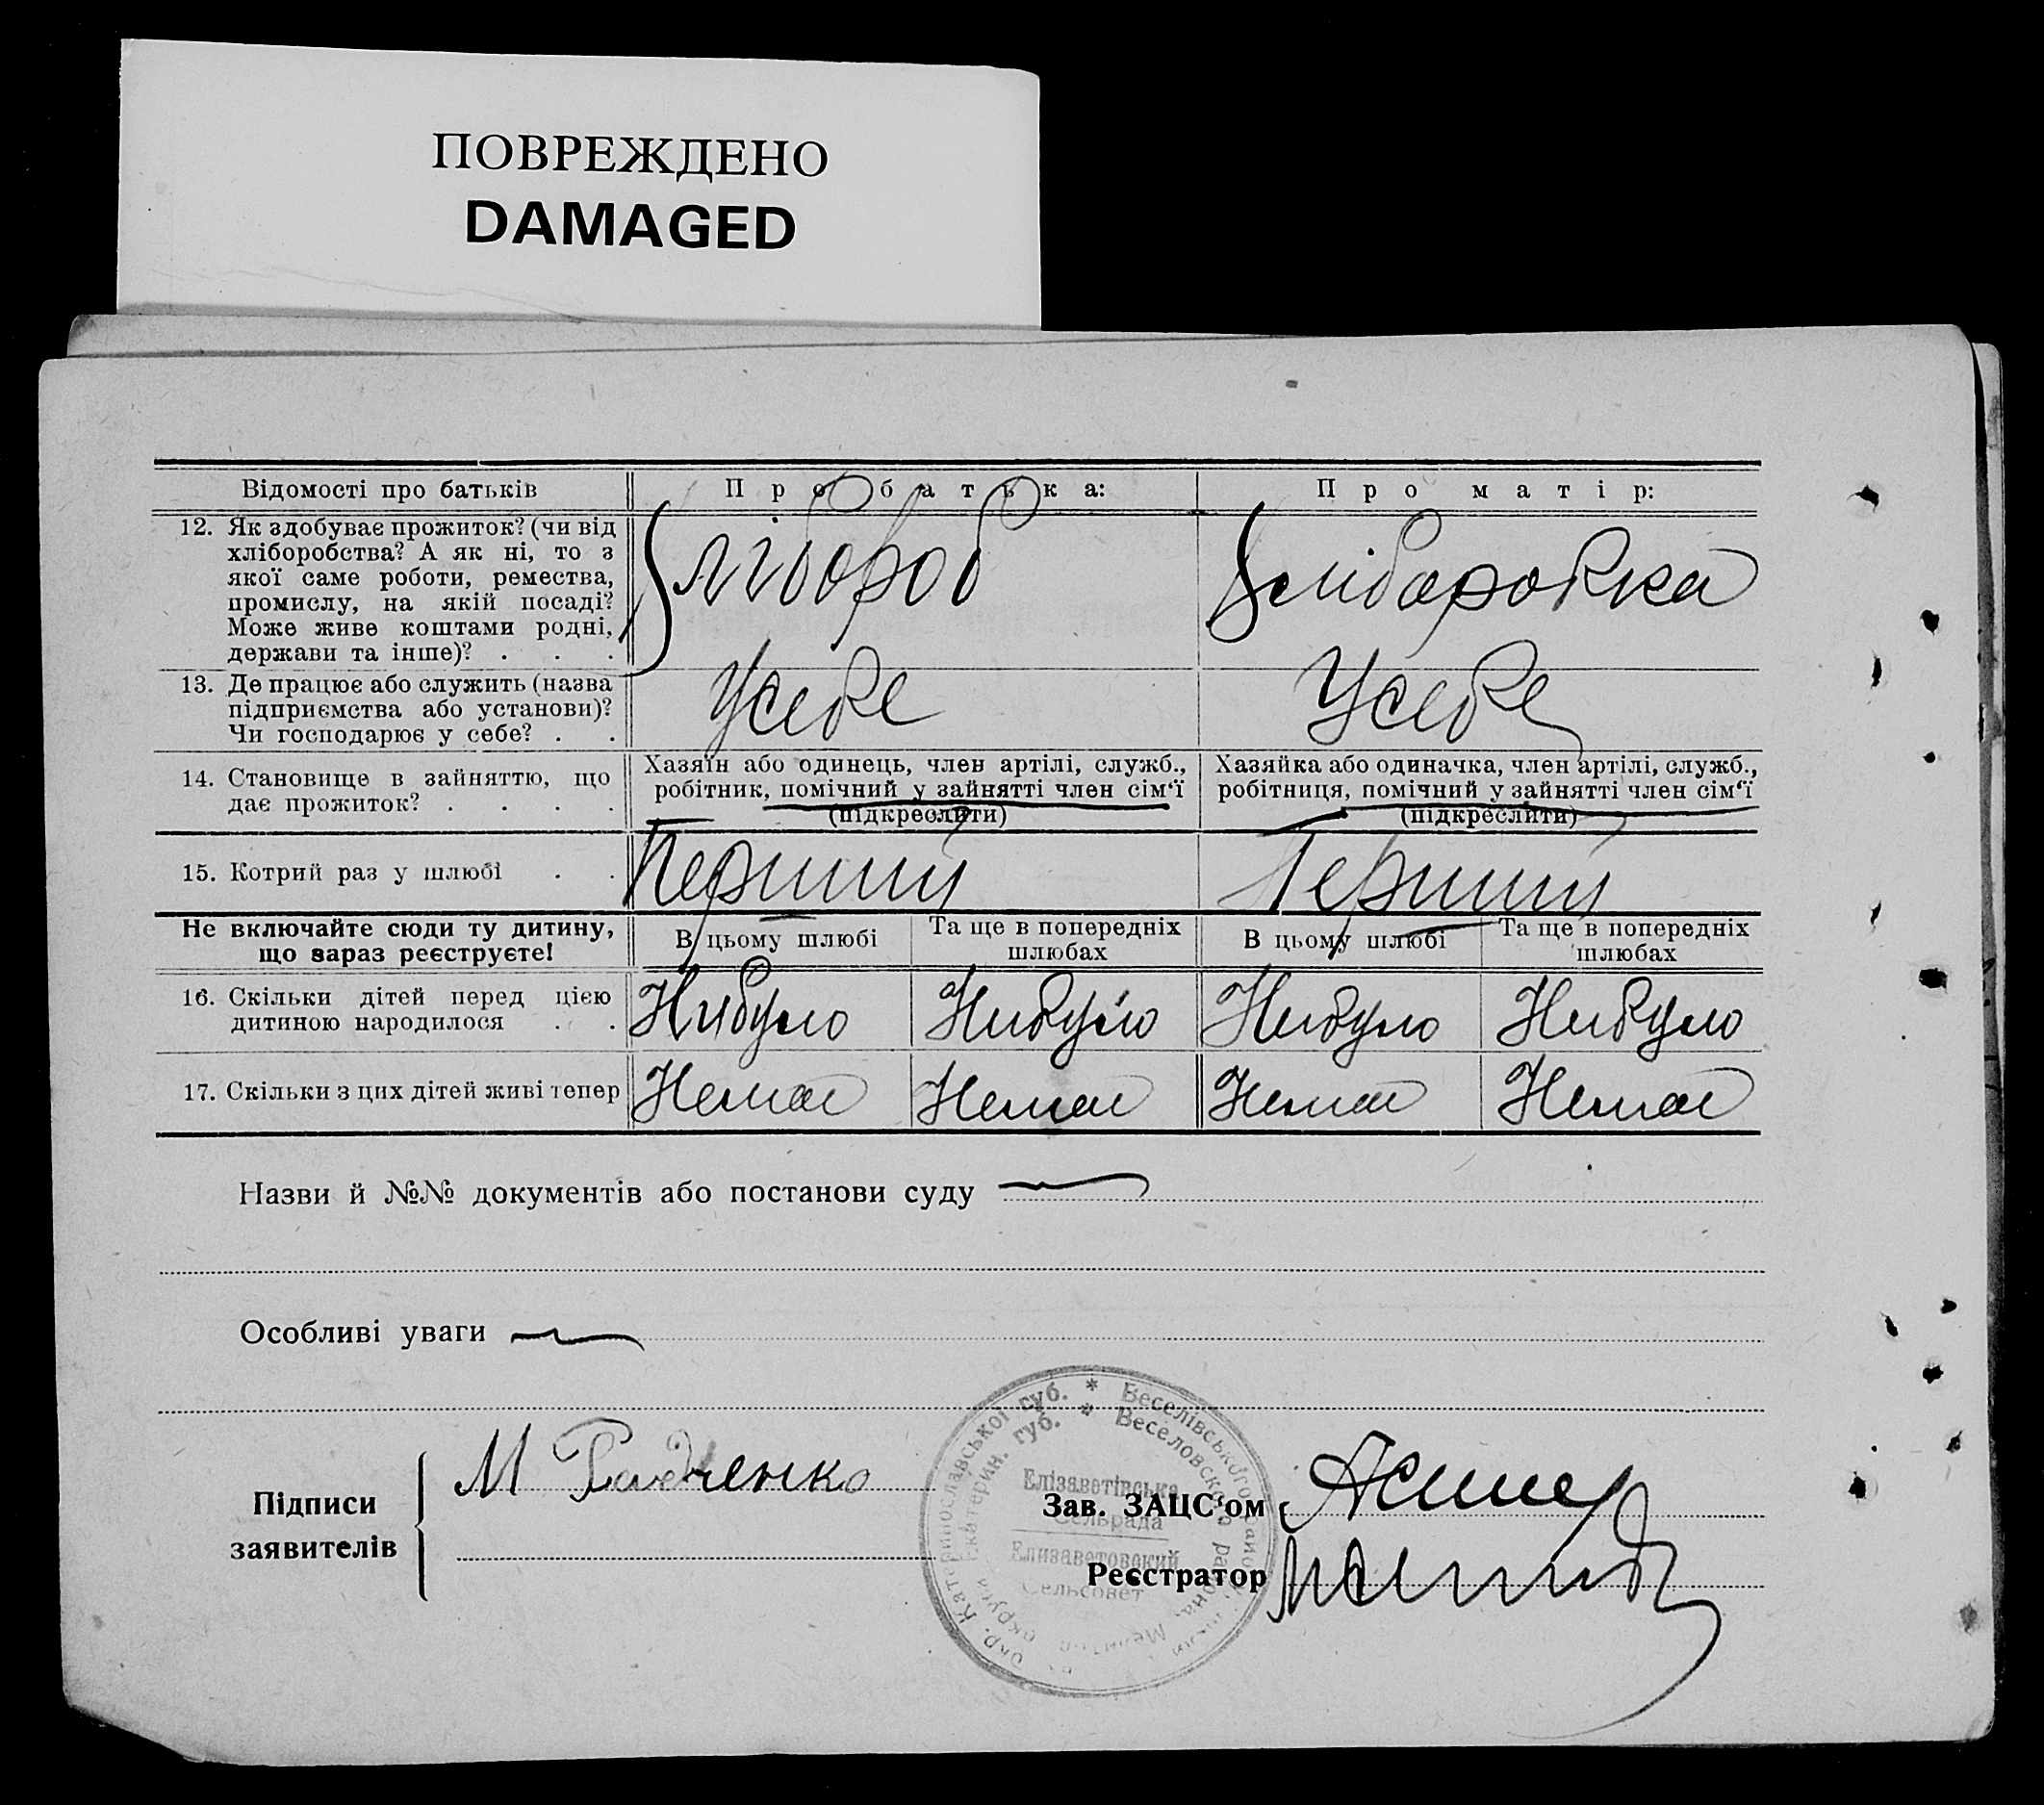 ПОВРЕЖДЕНО
DAMAGED
Відомості про батьків
Про батька:
Про матір:
12. Як здобуває прожиток? (чи від
хліборобства? А як ні, то з
якої саме роботи, ремества,
промислу, на якій посаді?
Може живе коштами родні,
держави та інше)? . . .
Хлібороб
Хліборобка
13. Де працює або служить (назва
підприємства або установи)?
Чи господарює у себе? . .
Усебе
Усебе
14. Становище в зайняттю, що
дає прожиток? . . . .
Хазяїн або одинець, член артілі, служб.,
робітник, помічний у зайнятті член сім'ї
(підкреслити)
Хазяйка або одиначка, член артілі, служб.,
робітниця, помічний у зайнятті член сім'ї
(підкреслити)
15. Котрий раз у шлюбі . .
Перший
Перший
Не включайте сюди ту дитину,
що зараз реєструєте!
В цьому шлюбі
Та ще в попередніх
шлюбах
В цьому шлюбі
Та ще в попередніх
шлюбах
16. Скільки дітей перед цією
дитиною народилося . .
Нибуло
Нибуло
Нибуло
Нибуло
17. Скільки з цих дітей живі тепер
Немає
Немає
Немає
Немає
Назви й №№ документів або постанови суду
Особливі уваги
Підписи
заявителів
М Радченко
Зав. ЗАЦС'ом
Реєстратор
Катеринославської губ. * Веселівського
Екатерин. губ. * Веселовского района,
Елізаветівська
Сельрада
Елизаветовский
Сельсовет